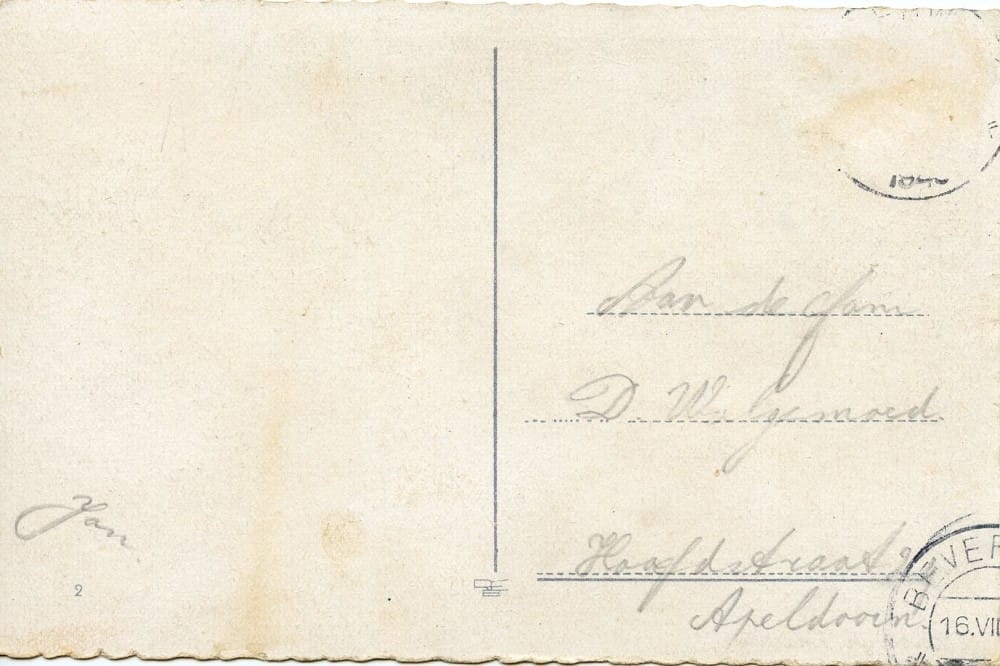 Aan de fam
D. Welgemoed
Hoofdstraat 2
Apeldoorn.
Jan
2
BEVER
16.VII